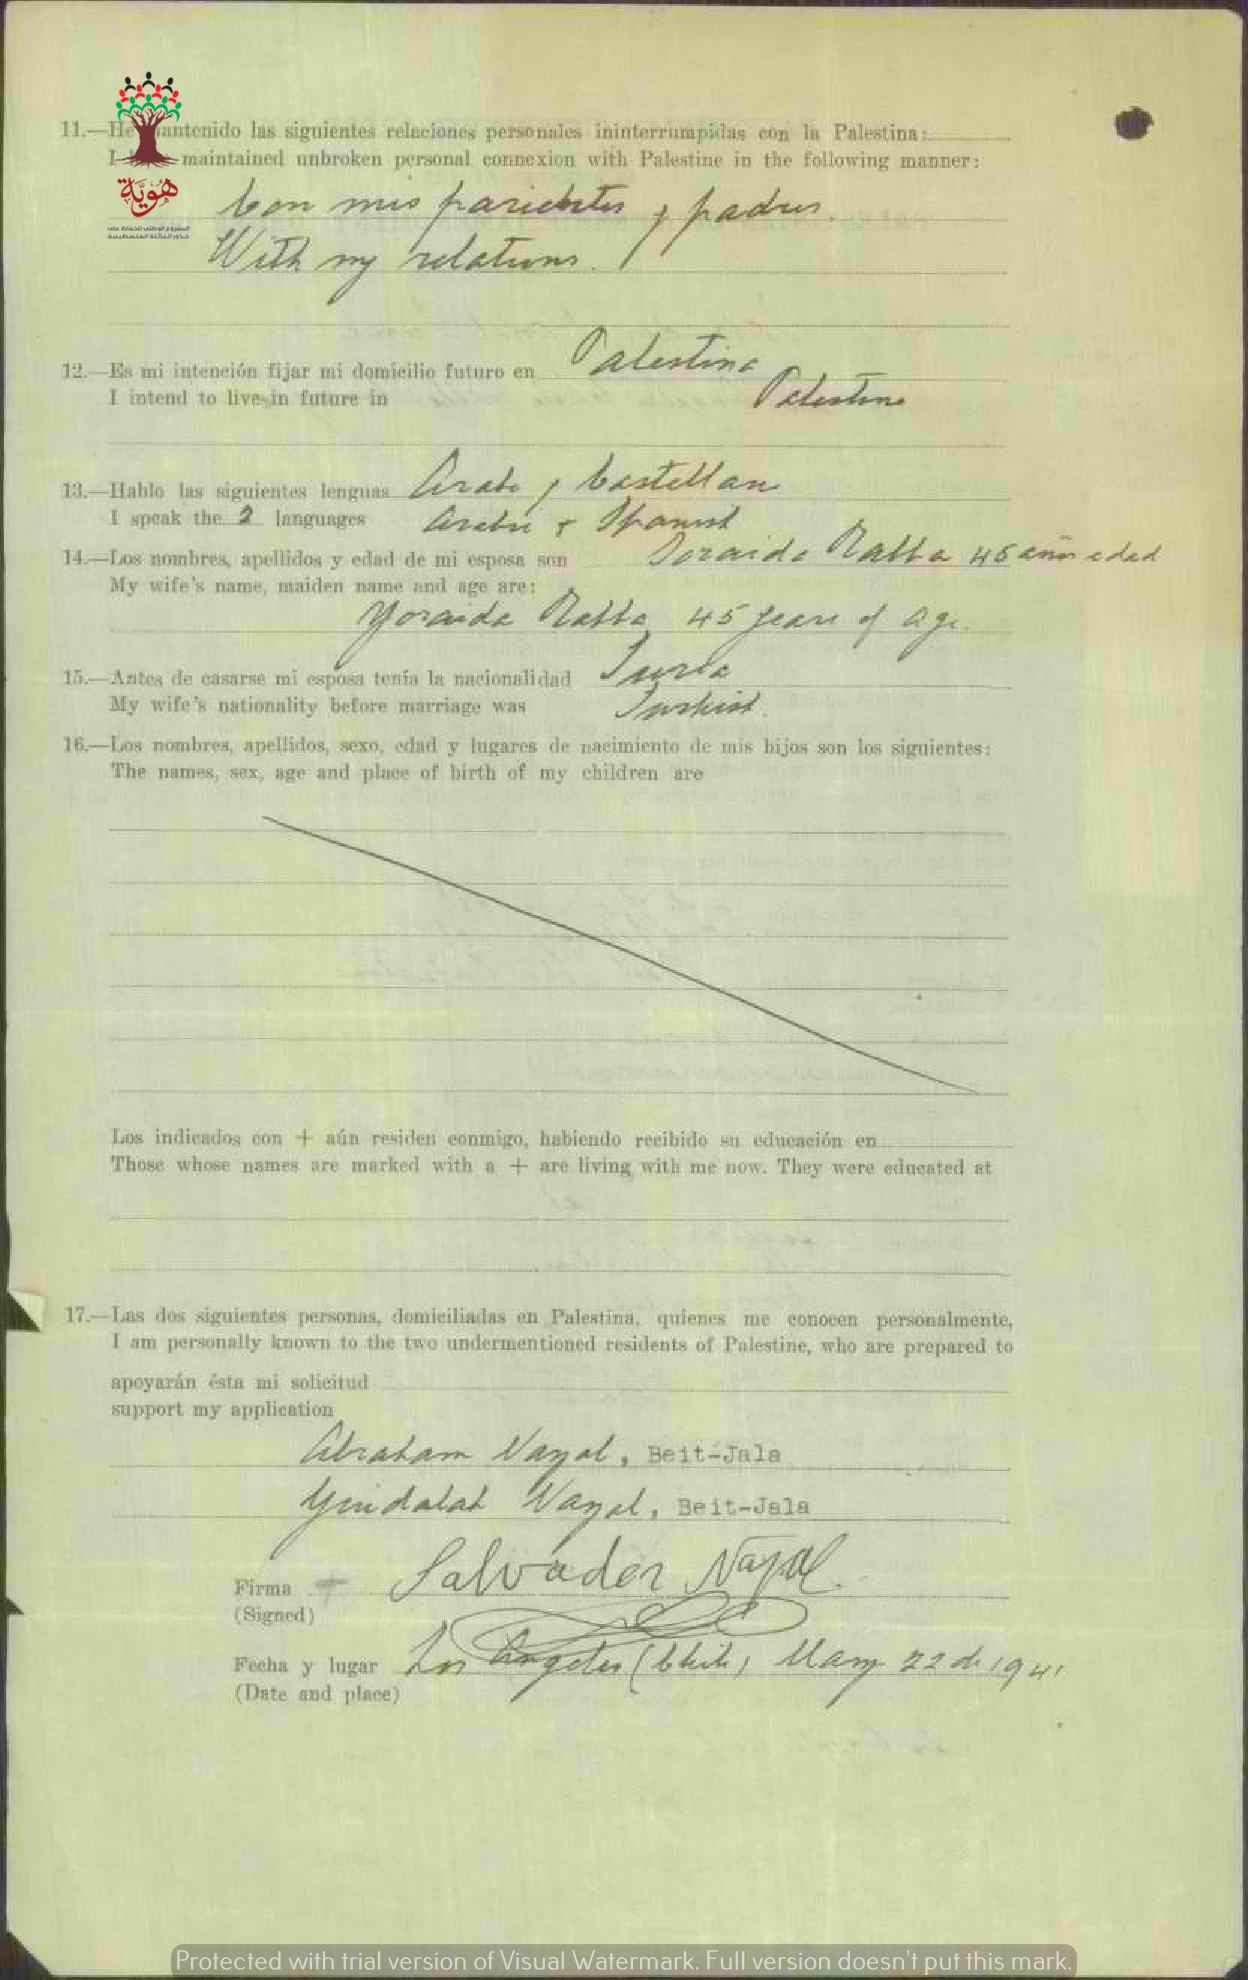 11.—He mantenido las siguientes relaciones personales ininterrumpidas con la Palestina:
I maintained unbroken personal connexion with Palestine in the following manner:
هوية
Con mis parientes y padres.
With my relations.
12.—Es mi intención fijar mi domicilio futuro en Palestina
I intend to live in future in Palestine
13.—Hablo las siguientes lenguas Arabe y Castellan
I speak the 2 languages Arabic & Spanish
14.—Los nombres, apellidos y edad de mi esposa son Soraida 45 años edad
My wife's name, maiden name and age are:
Yoraida 45 years of age.
15.—Antes de casarse mi esposa tenía la nacionalidad Turca
My wife's nationality before marriage was Turkish.
16.—Los nombres, apellidos, sexo, edad y lugares de nacimiento de mis hijos son los siguientes:
The names, sex, age and place of birth of my children are
Los indicados con + aún residen conmigo, habiendo recibido su educación en
Those whose names are marked with a + are living with me now. They were educated at
17.—Las dos siguientes personas, domiciliadas en Palestina, quienes me conocen personalmente,
I am personally known to the two undermentioned residents of Palestine, who are prepared to
apoyarán ésta mi solicitud
support my application
Abraham Nayal, Beit-Jala
Nayal, Beit-Jala
Firma + Salvador Nayal.
(Signed)
Fecha y lugar Los Angeles (Chile) Mayo 22 de 1941
(Date and place)
Protected with trial version of Visual Watermark. Full version doesn't put this mark.